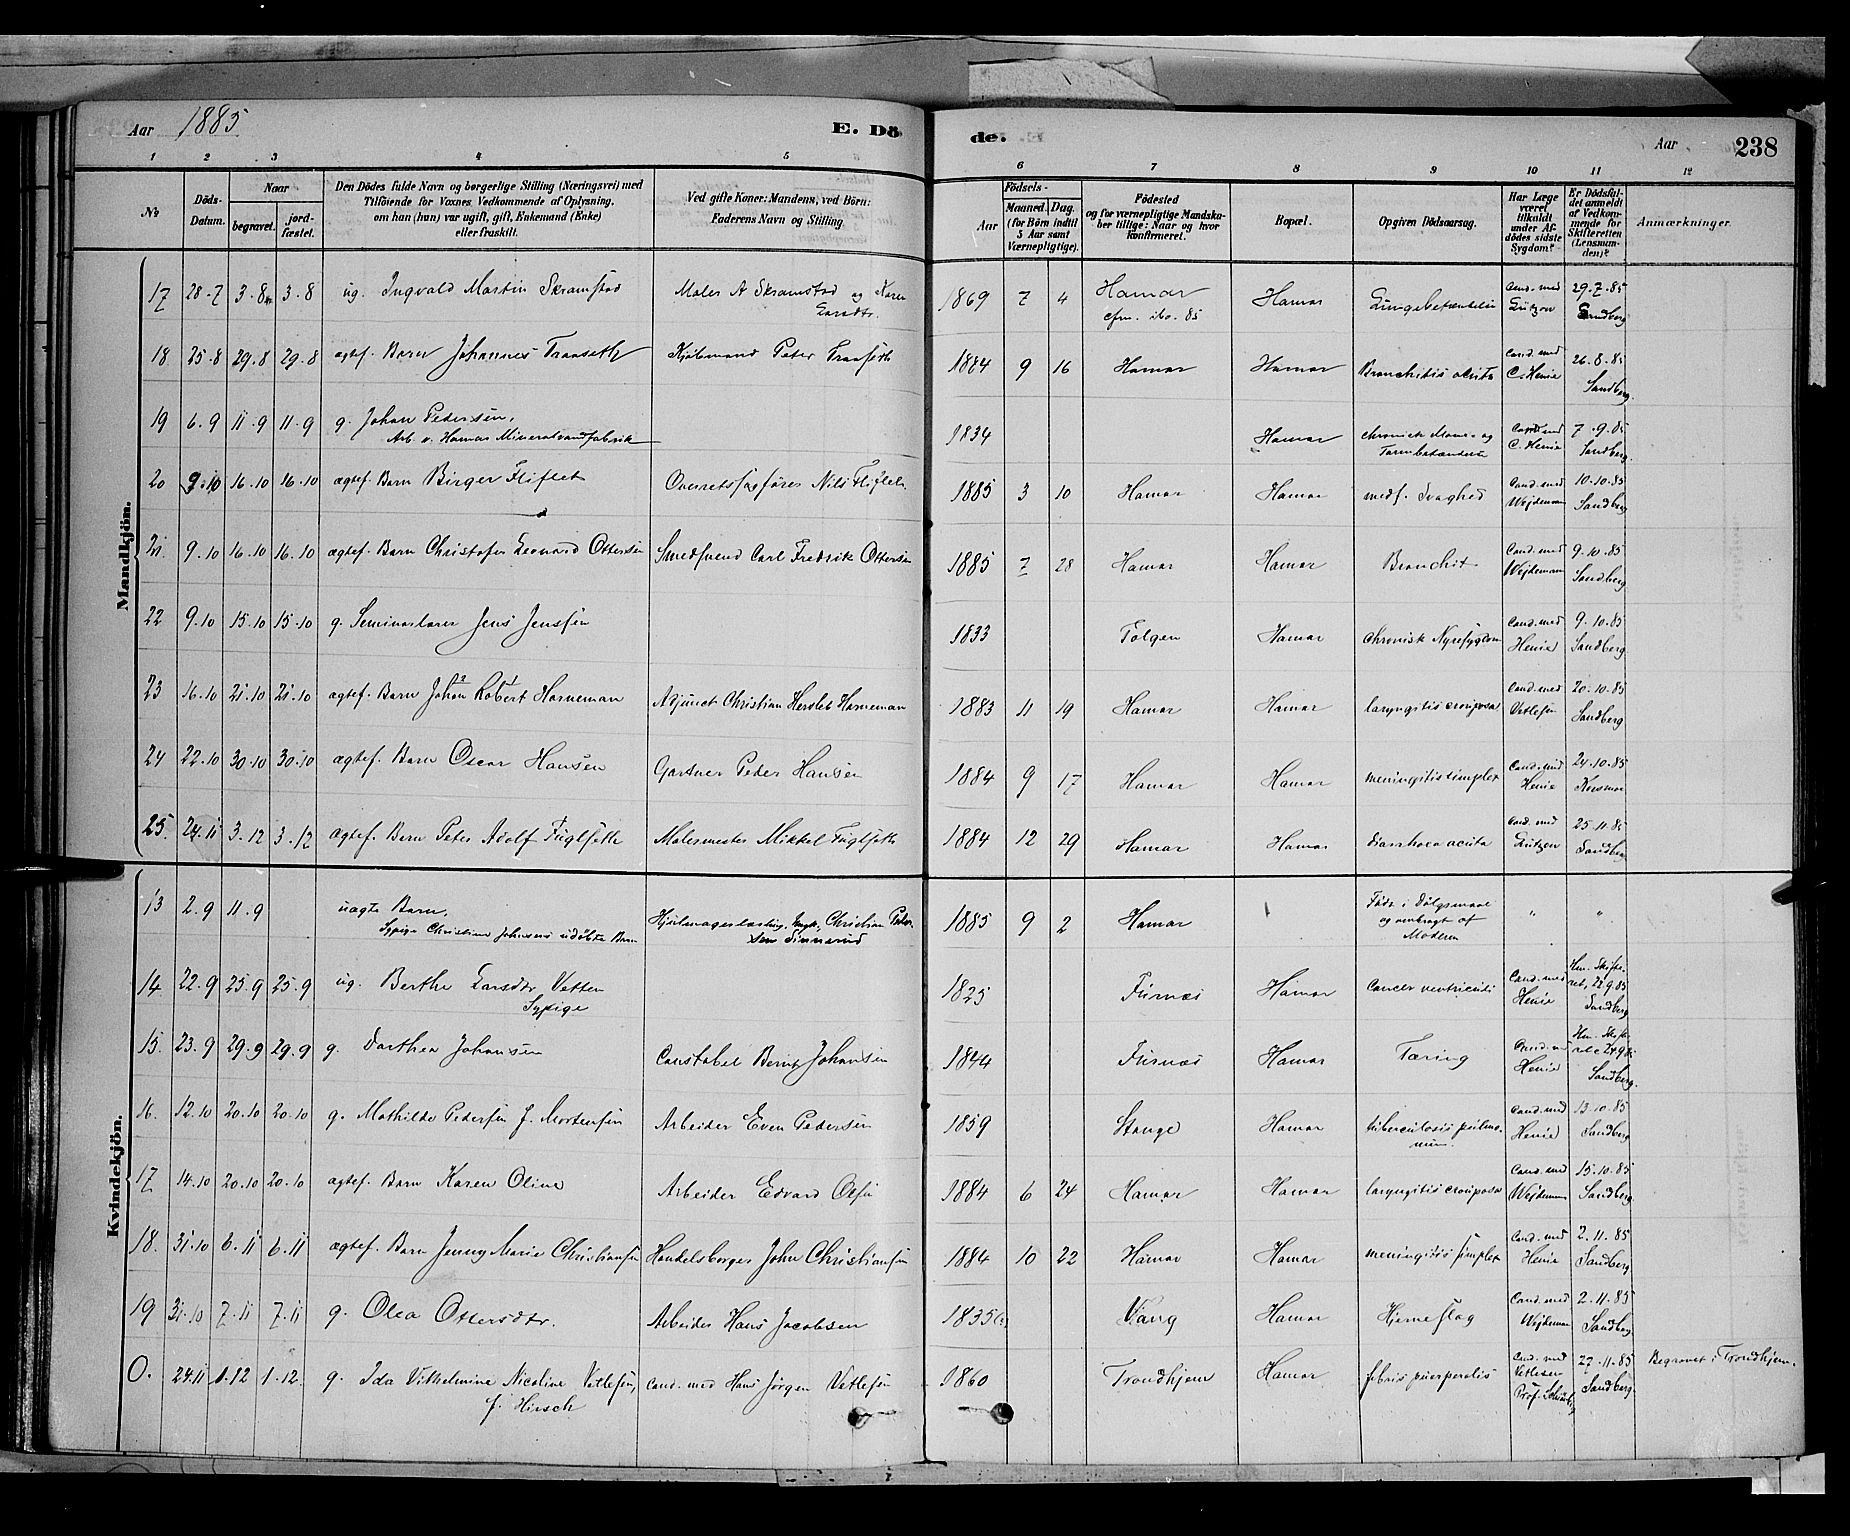 Aar 1885 E. Dö de. Aar 238
1 2 3 4 5 6 7 8 9 10 11 12
No Döds-Datum. Naar begravet. jord-fæstet. Den Dödes fulde Navn og borgerlige Stilling (Næringsvei) med Tilföiende for Voxnes Vedkommende af Oplysning, om han (hun) var ugift, gift, Enkemand (Enke) eller fraskilt. Ved gifte Koner: Mandens, ved Börn: Faderens Navn og Stilling. Födsels- Aar Maaned. Dag. (for Börn indtil 5 Aar samt Værnepligtige). Födested og for værnepligtige Mandska-ber tillige: Naar og hvor konfirmeret. Bopæl. Opgiven Dödsaarsag. Har Læge været tilkaldt under Af-dödes sidste Sygdom? Er Dödsfal-det anmeldt af Vedkom-mende for Skifteretten (Lensman-den)? Anmærkninger.
Mandkjön.
17 28-7 3-8 3-8 ug. Ingvald Martin Skramstad Maler A Skramstad og Karen Larsdtr. 1869 7 4 Hamar cfm. ibo. 85 Hamar Lungebetændelse Cand. med Lützow 29.7.85 Sandberg
18 25-8 29-8 29-8 ægtef. Barn Johannes Traaseth Kjöbmand Peter Traaseth 1884 9 16 Hamar Hamar Bronchitis acuta Cand. med C. Henie 26.8.85 Sandberg
19 6.9 11.9 11.9 g. Johan Pedersen, Arb. v. Hamar Mineralvandfabrik 1834 Hamar chronisk Mave- og Tarmbetændelse Cand. med C. Henie 7.9.85 Sandberg.
20 9.10 16.10 16.10 ægtef. Barn Birger Fliflet Overretssagförer Nils Fliflet 1885 3 10 Hamar Hamar medf. Svaghed Cand. med Wejdeman 10.10.85 Sandberg
21 9.10 16.10 16.10 ægtef. Barn Christofer Leonard Ottersen Smedsvend Carl Fredrik Ottersen 1885 7 28 Hamar Hamar Bronchit Cand. med Wejdeman 9.10.85 Sandberg
22 9.10 15.10 15.10 g. Seminarlærer Jens Jensen 1833 Tolgen Hamar chronisk Nyresygdom Cand. med Henie 9.10.85 Sandberg
23 16.10 21.10 21.10 ægtef. Barn Johan Robert Horneman Adjunct Christian Hersleb Horneman 1883 11 19 Hamar Hamar laryngitis crouposa Cand. med Vetlesen 20.10.85 Sandberg
24 22.10 30.10 30.10 ægtef. Barn Oscar Hansen Gartner Peder Hansen 1884 9 17 Hamar Hamar meningitis simplex Cand. med Henie 24.10.85
25. 24.11 3.12 3.12 ægtef. Barn Peter Adolf Fuglseth Malermester Mikkel Fuglseth 1884 12 29 Hamar Hamar diarrhoea acuta Cand. med Lützow 25.11.85 Sandberg
Kvindekjön.
13 2.9 11.9 uægte Barn, Sypige Christine Johnsens udöbte Barn Hjulmagerlærling Ungk. Christian Peder-sen Sinnerud 1885 9 2 Hamar Födt i Dölgsmaal og ombragt af Moderen " "
14 22.9 25.9 25.9 ug. Berthe Larsdtr Vetten Sypige 1825 Furnæs Hamar Cancer ventriculi Cand. med Henie Hm. Skifte-ret, 22.9.85 Sandberg
15. 23.9 29.9 29.9 g. Dorthea Johansen Constabel Bernt Johansen 1844 Furnæs Hamar Tæring Cand. med Henie Hm. Skifte-ret 24.9.85 Sandberg.
16. 12.10 20.10 20.10 g. Mathilde Pedersen f. Mortensen Arbeider Even Pedersen 1859 Stange Hamar tuberculosis pulmo-num. Cand. med Henie 13.10.85 Sandberg
17 14.10 20.10 20.10 ægtef. Barn Karen Oline Arbeider Edvard Olsen 1884 6 24 Hamar Hamar laryngitis crouposa Cand. med Wejdeman 15.10.85 Sandberg
18. 31.10 6.11 6.11 ægtef. Barn Jenny Marie Christiansen Handelsborger John Christiansen 1884 10 22 Hamar Hamar meningitis simplex Cand. med Henie 2.11.85 Sandberg
19 31.10 7.11 7.11 g. Olea Ottersdtr. Arbeider Hans Jacobsen 1835 Vang Hamar Hjerneslag Cand. med Wejdeman 2.11.85 Sandberg
0. 24.11 1.12 1.12. g. Ida Vilhelmine Nicoline Vetlesen, f. Hirsch Cand. med Hans Jörgen Vetlesen 1860 Trondhjem Hamar febris puerperalis Cand. med Vetlesen Prof. 27.11.85 Sandberg. Begravet i Trondhjem.